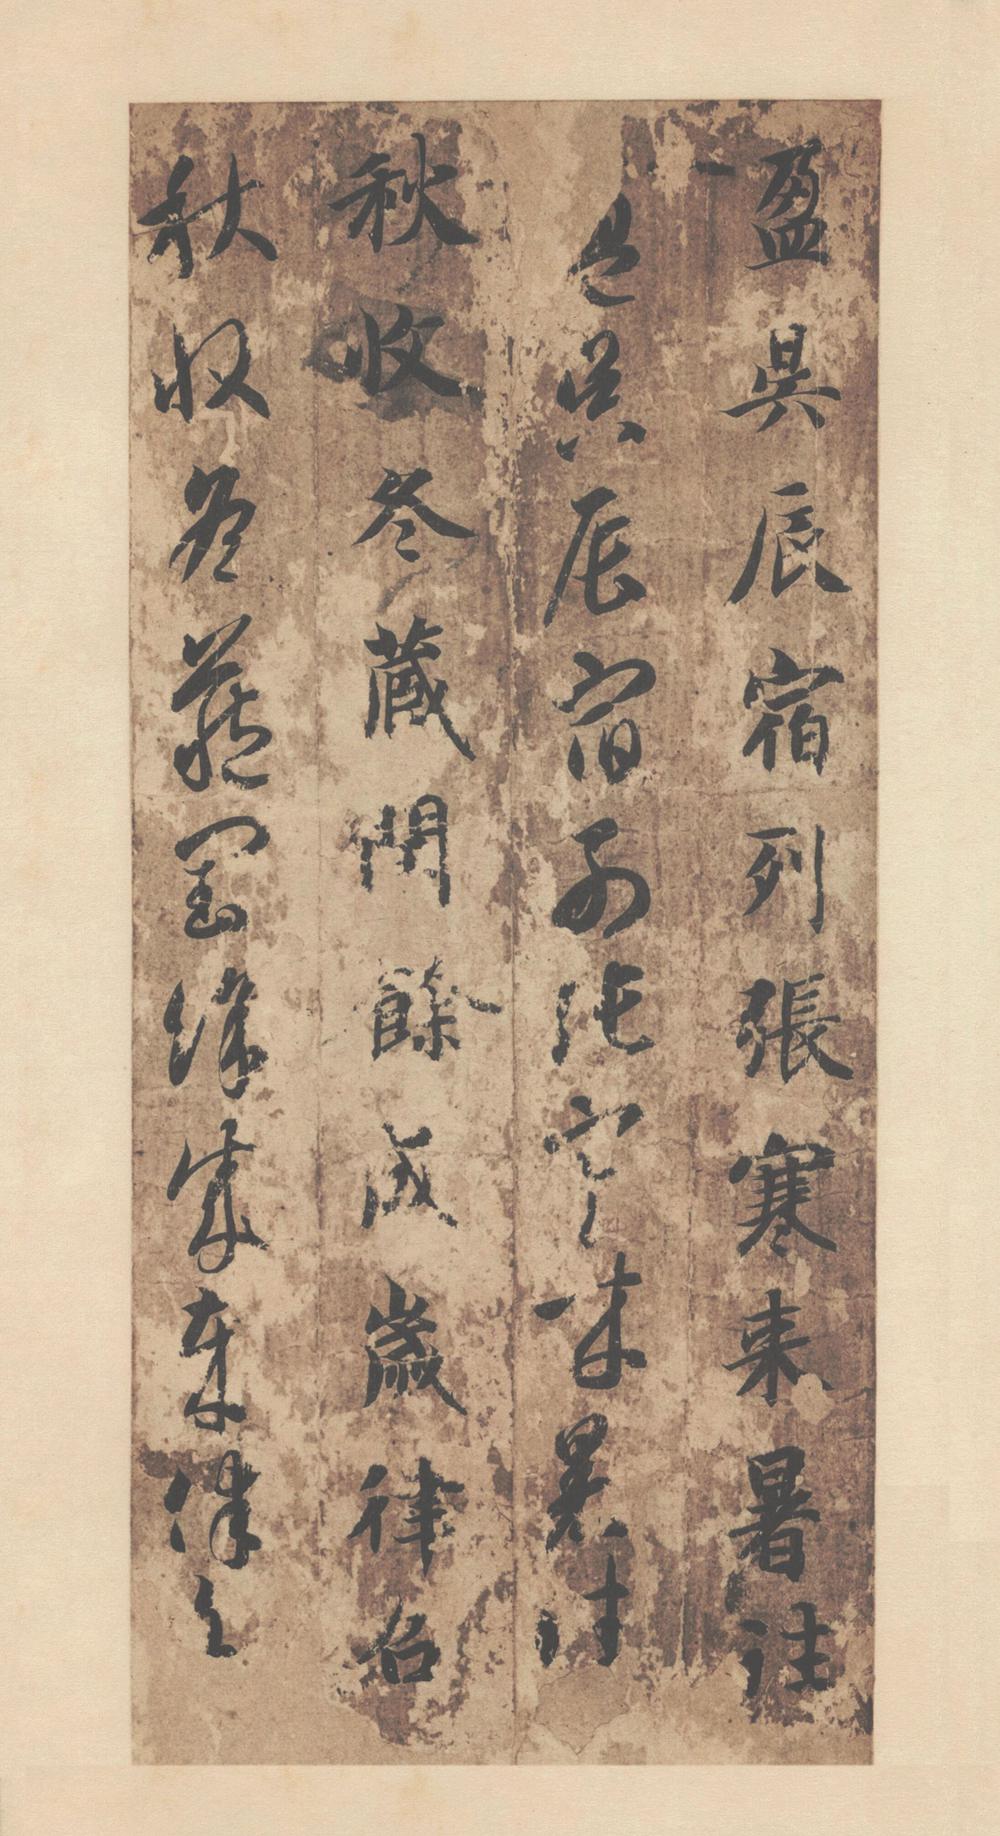 盈昃辰宿列張寒来暑往
盈昃辰宿列張寒来暑往
秋收冬藏閏餘成歲律召
秋收冬藏閏餘成歲律召